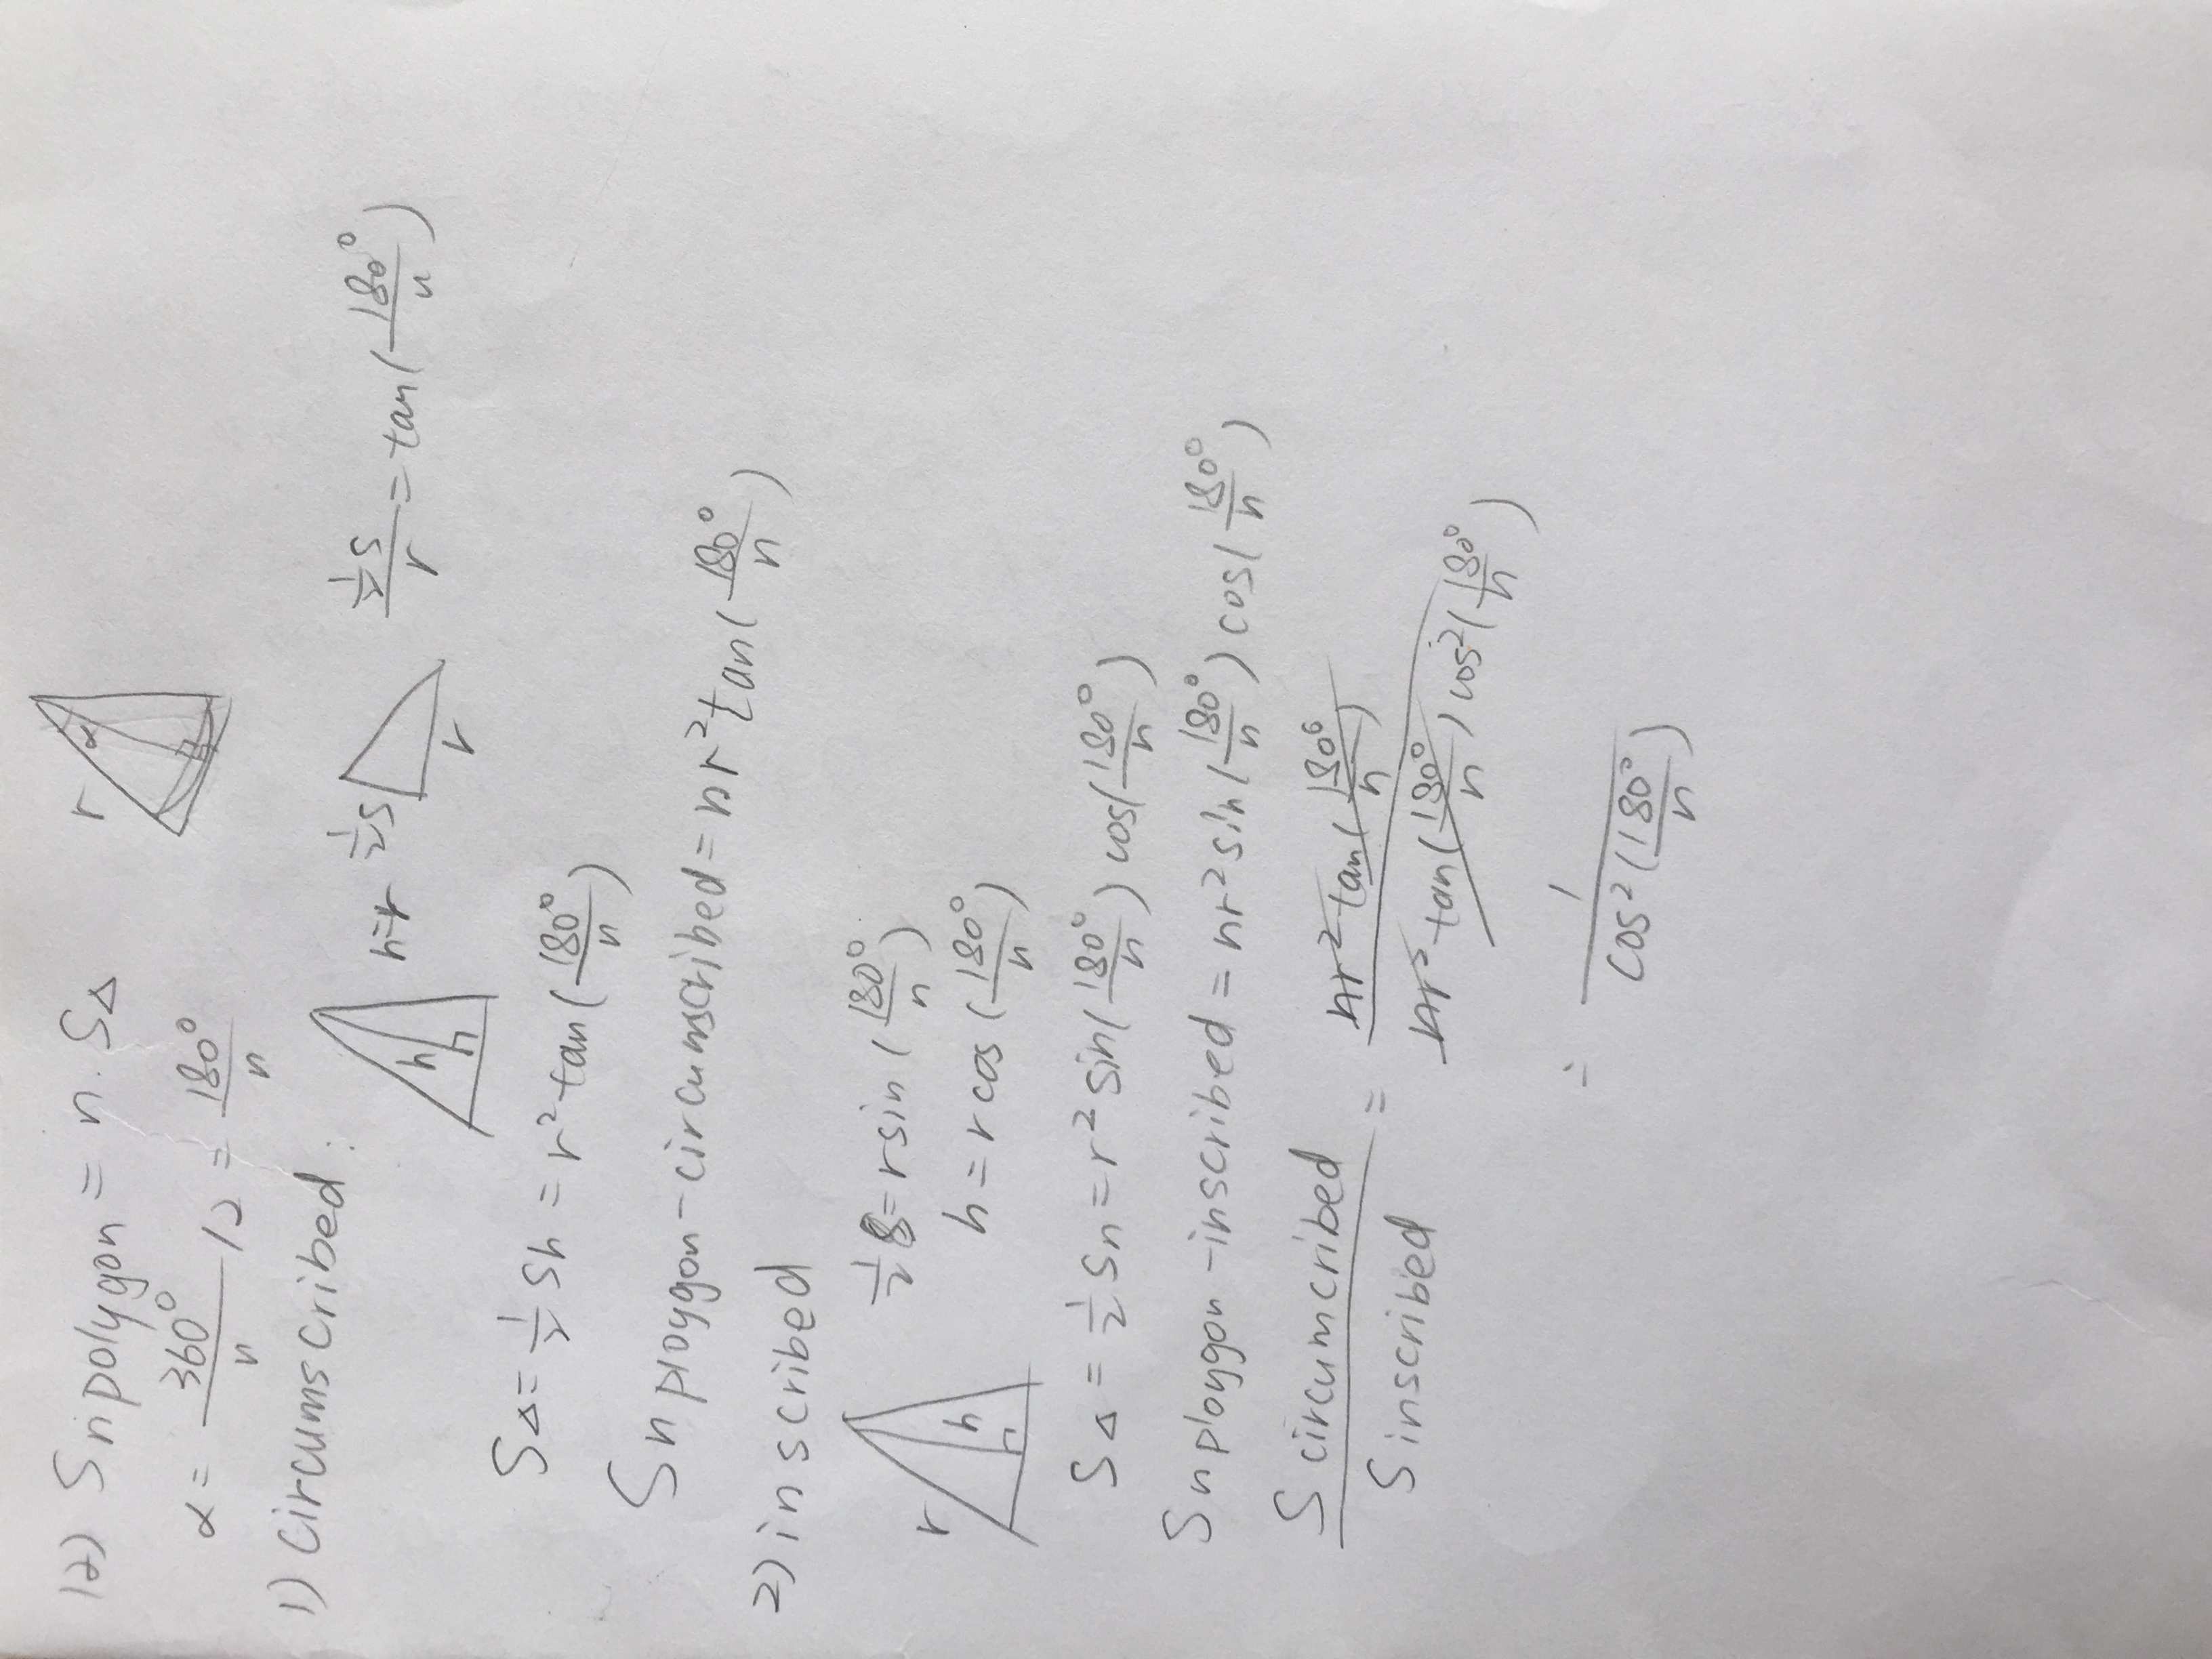 12) Sn polygon = n · S△
r α
α = 360°/n /2 = 180°/n
1) Circumscribed:
h h=r ½s r ½s/r = tan(180°/n)
S△ = ½ sh = r² tan(180°/n)
Sn ploygon-circumscribed = nr² tan(180°/n)
2) inscribed
r h ½s = r sin(180°/n)
h = r cos(180°/n)
S△ = ½ sh = r² sin(180°/n) cos(180°/n)
Sn ploygon-inscribed = nr² sin(180°/n) cos(180°/n)
S circumcribed / S inscribed = nr² tan(180°/n) / nr² tan(180°/n) cos²(180°/n)
= 1 / cos²(180°/n)